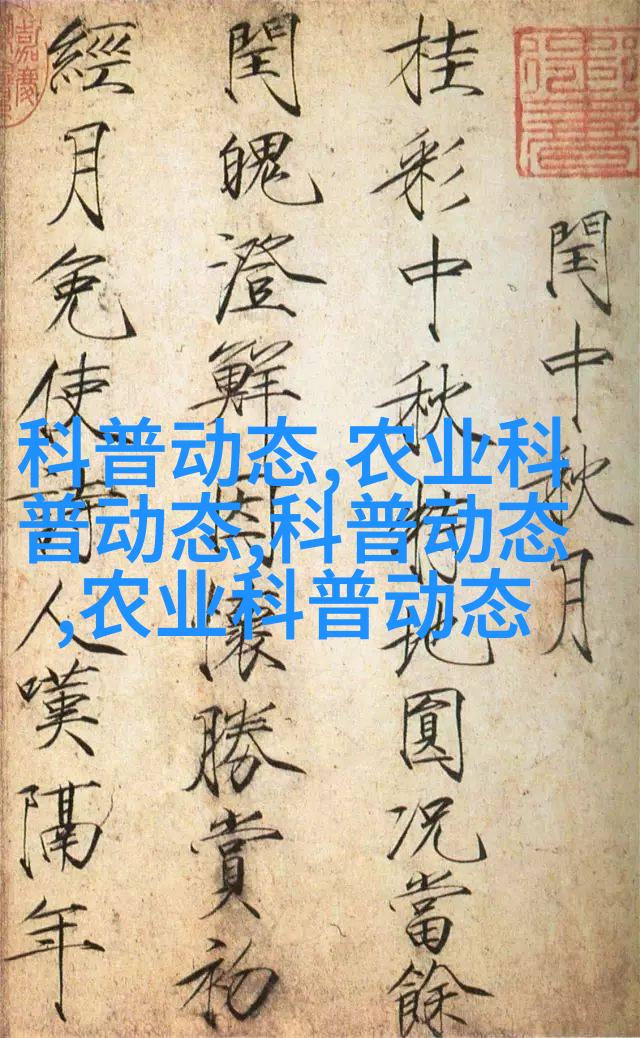 閏中秋月
桂彩中秋特地圓况當餘
閏魄澄鮮因懷勝賞初
經月免使詩人嘆隔年
科普动态,农业科
普动态,科普动态
,农业科普动态